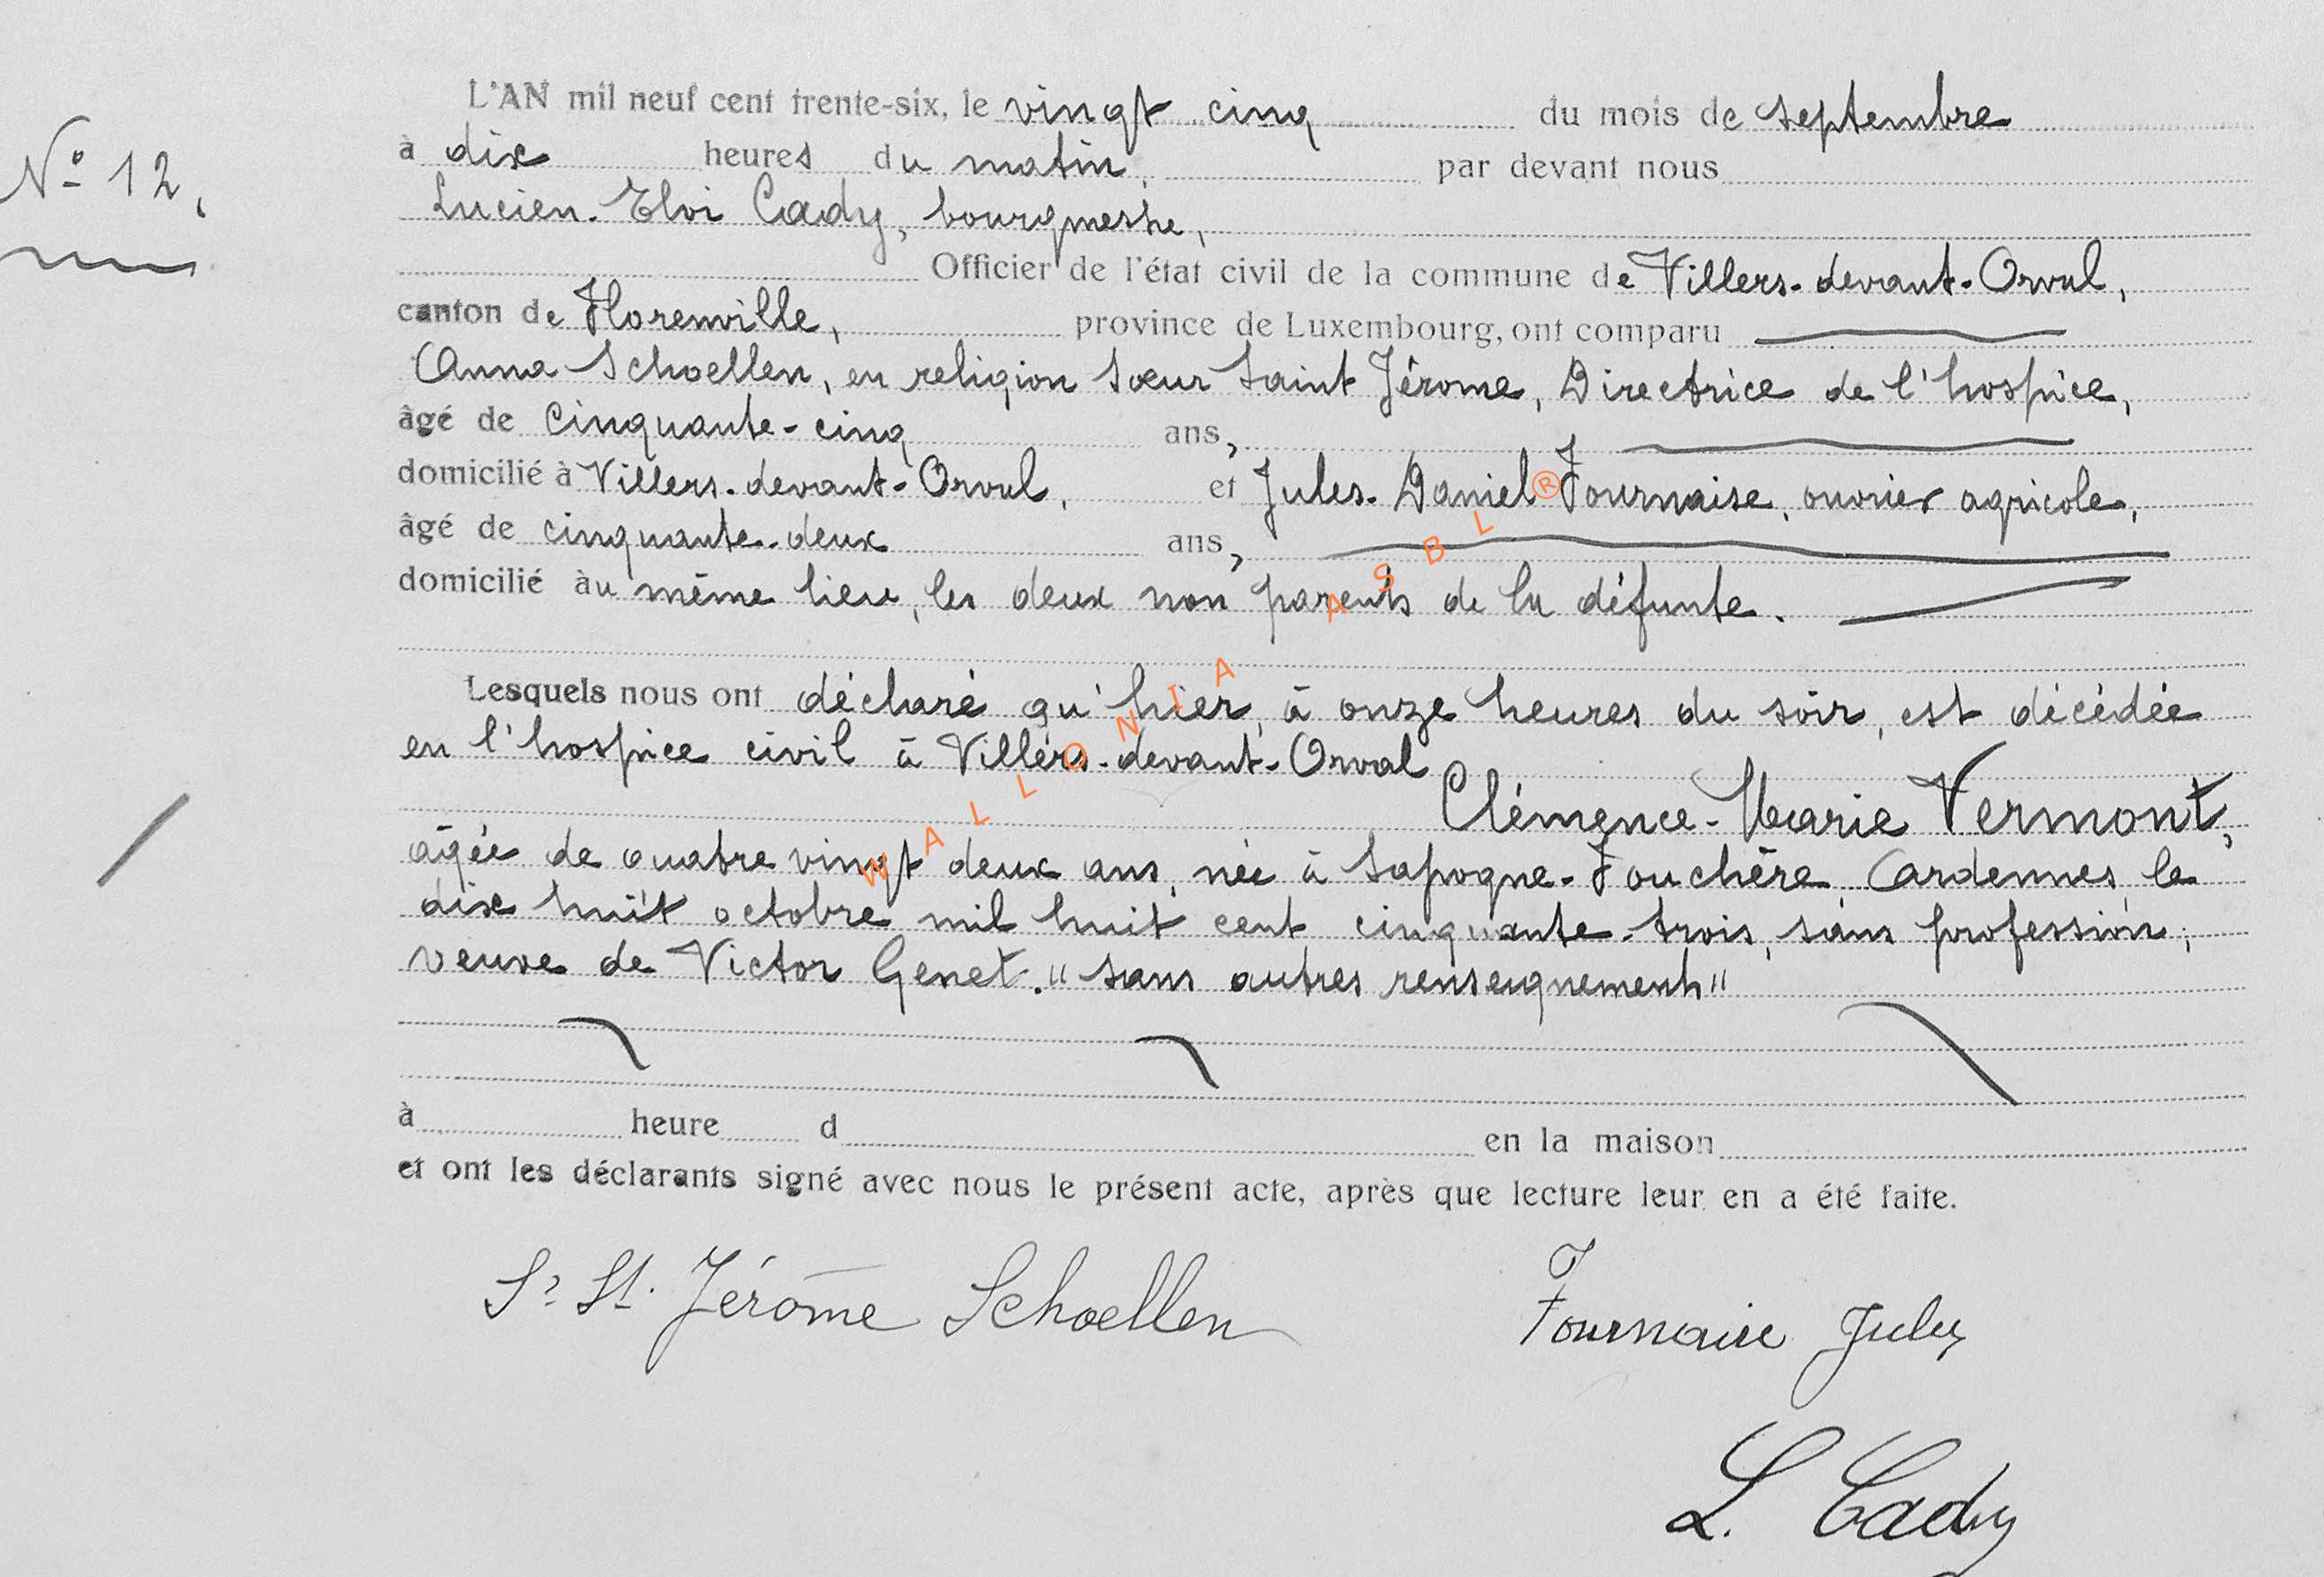 L'AN mil neuf cent trente-six, le vingt cinq du mois de septembre
N° 12.
à dix heures du matin, par devant nous
Lucien-Eloi Cady, bourgmestre,
Officier de l'état civil de la commune de Villers-devant-Orval,
canton de Florenville, province de Luxembourg, ont comparu
Anna Schoellen, en religion sœur Saint Jérome, Directrice de l'hospice,
âgé de cinquante-cinq ans,
domicilié à Villers-devant-Orval, et Jules-Daniel Fournaise, ouvrier agricole,
âgé de cinquante-deux ans,
domicilié àu même lieu, les deux non parents de la défunte.
Lesquels nous ont déclaré qu'hier, à onze heures du soir, est décédée
en l'hospice civil à Villers-devant-Orval
Clémence-Marie Vermont,
agée de quatre vingt deux ans, née à Sapogne-Fouchère, Cardennes, le
dix huit octobre mil huit cent cinquante-trois, sans profession,
veuve de Victor Genet. "sans autres renseignements"
à heure d en la maison
et ont les déclarants signé avec nous le présent acte, après que lecture leur en a été faite.
Sr St. Jérôme Schoellen
Fournaise Jules
L. Cady
WALLONIA ASBL ®